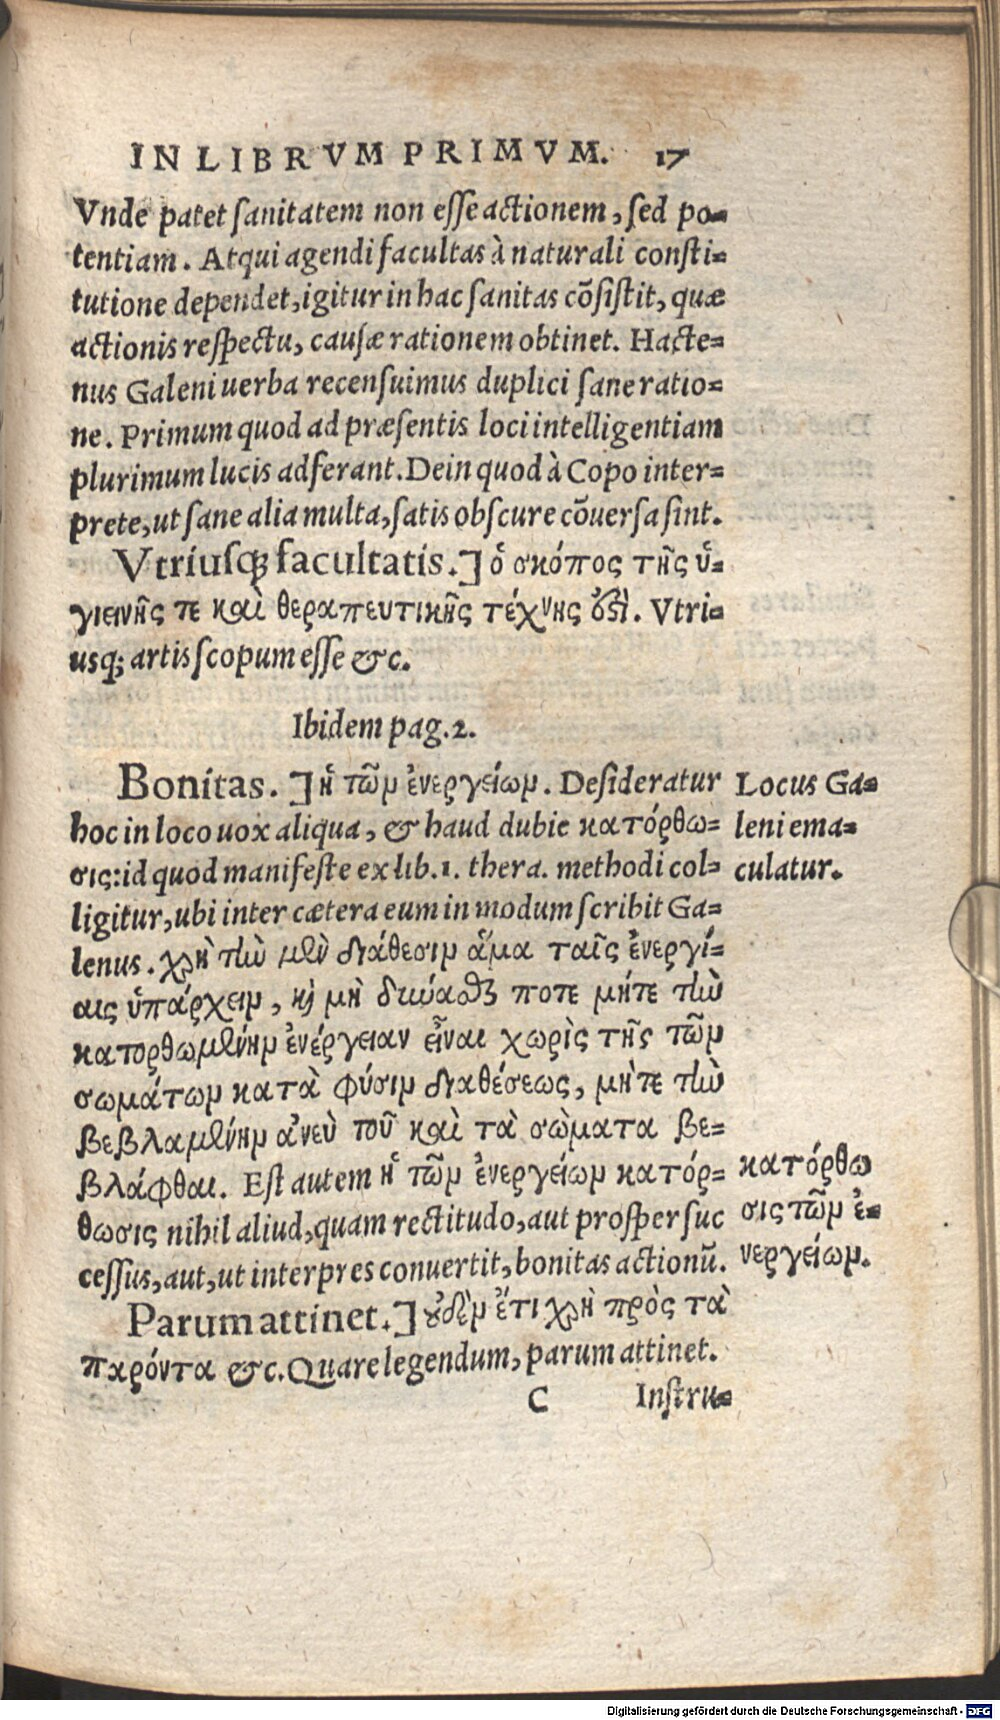 IN LIBRVM PRIMVM. 17
Vnde patet sanitatem non esse actionem, sed po-
tentiam. Atqui agendi facultas à naturali consti-
tutione dependet, igitur in hac sanitas cōsistit, quæ
actionis respectu, causæ rationem obtinet. Hacte-
nus Galeni uerba recensuimus duplici sane ratio-
ne. Primum quod ad præsentis loci intelligentiam
plurimum lucis adferant. Dein quod à Copo inter-
prete, ut sane alia multa, satis obscure cōuersa sint.
Vtriusq; facultatis.] ὁ σκόπος τῆς ὑ-
γιεινῆς τε καὶ θεραπευτικῆς τέχνης ἐστὶ. Vtri-
usq; artis scopum esse &c.
Ibidem pag. 2.
Bonitas.] ἡ τῶν ἐνεργείων. Desideratur
hoc in loco uox aliqua, & haud dubie κατόρθω-
σις: id quod manifeste ex lib. 1. thera. methodi col-
ligitur, ubi inter cætera eum in modum scribit Ga-
lenus. χρὴ τὴν μὲν διάθεσιν ἅμα ταῖς ἐνεργί-
αις ὑπάρχειν, καὶ μὴ δύνασθαι ποτε μήτε τὴν
κατορθωμένην ἐνέργειαν εἶναι χωρὶς τῆς τῶν
σωμάτων κατὰ φύσιν διαθέσεως, μήτε τὴν
βεβλαμένην ἀνεὺ τοῦ καὶ τὰ σώματα βε-
βλάφθαι. Est autem ἡ τῶν ἐνεργείων κατόρ-
θωσις nihil aliud, quam rectitudo, aut prosper suc
cessus, aut, ut interpres conuertit, bonitas actionū.
Parum attinet.] οὐδὲν ἔτι χρὴ πρὸς τὰ
παρόντα &c. Quare legendum, parum attinet.
C Instru-
Locus Ga-
leni ema-
culatur.
κατόρθω
σις τῶν ἐ-
νεργείων.
Digitalisierung gefördert durch die Deutsche Forschungsgemeinschaft - DFG